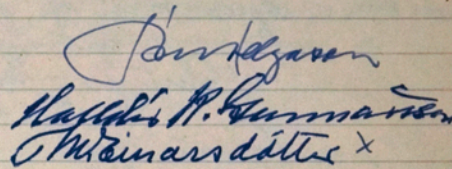 Jón Helgason
Halldór K. Gunnarsson
Einarsdóttir x